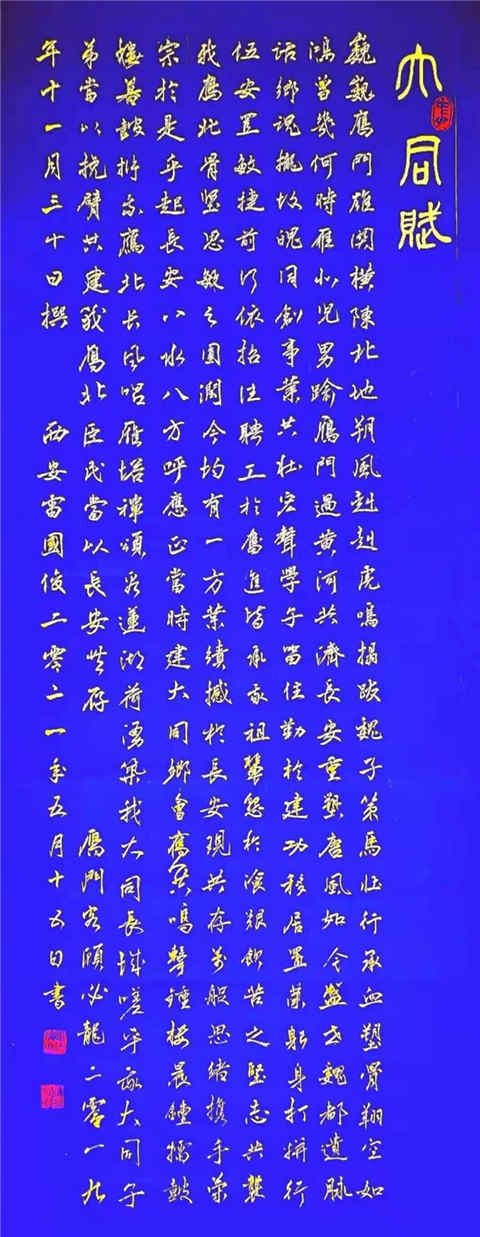 大同賦
巍巍鴈門雄関横陳北地朔風赳赳虎鳴揚跋魏子策馬壮行承血塑骨翔空如
鴻曽幾何時雁北児男踰鴈門過黄河共濟長安重塑唐風如今盛世魏都道脉
話鄉況攏故魄同創事業共壮宏聲學子留住勤於建功移居置業躬身打拼行
伍安置敏捷前行依招注聘工於奮進皆承家祖輩於滄艱飲苦之堅志共襲
我鴈北骨堅思敏之圓潤今均有一方業績撼於長安現共存萬般思緒携手榮
宗於是乎起長安八水八方呼應正當時建大同鄉會奮其鳴聲鐘樓晨鐘擂鼓
樓暮鼓家鴈北長風唱雁塔禪頌若蓮湖荷湧築我大同長城嗟乎家大同子
弟當以挽臂共建我鴈北臣民當以長安共存 鴈門客頋必龍二零一九
年十一月三十日撰 西安雷國俊二零二一年五月十五日書